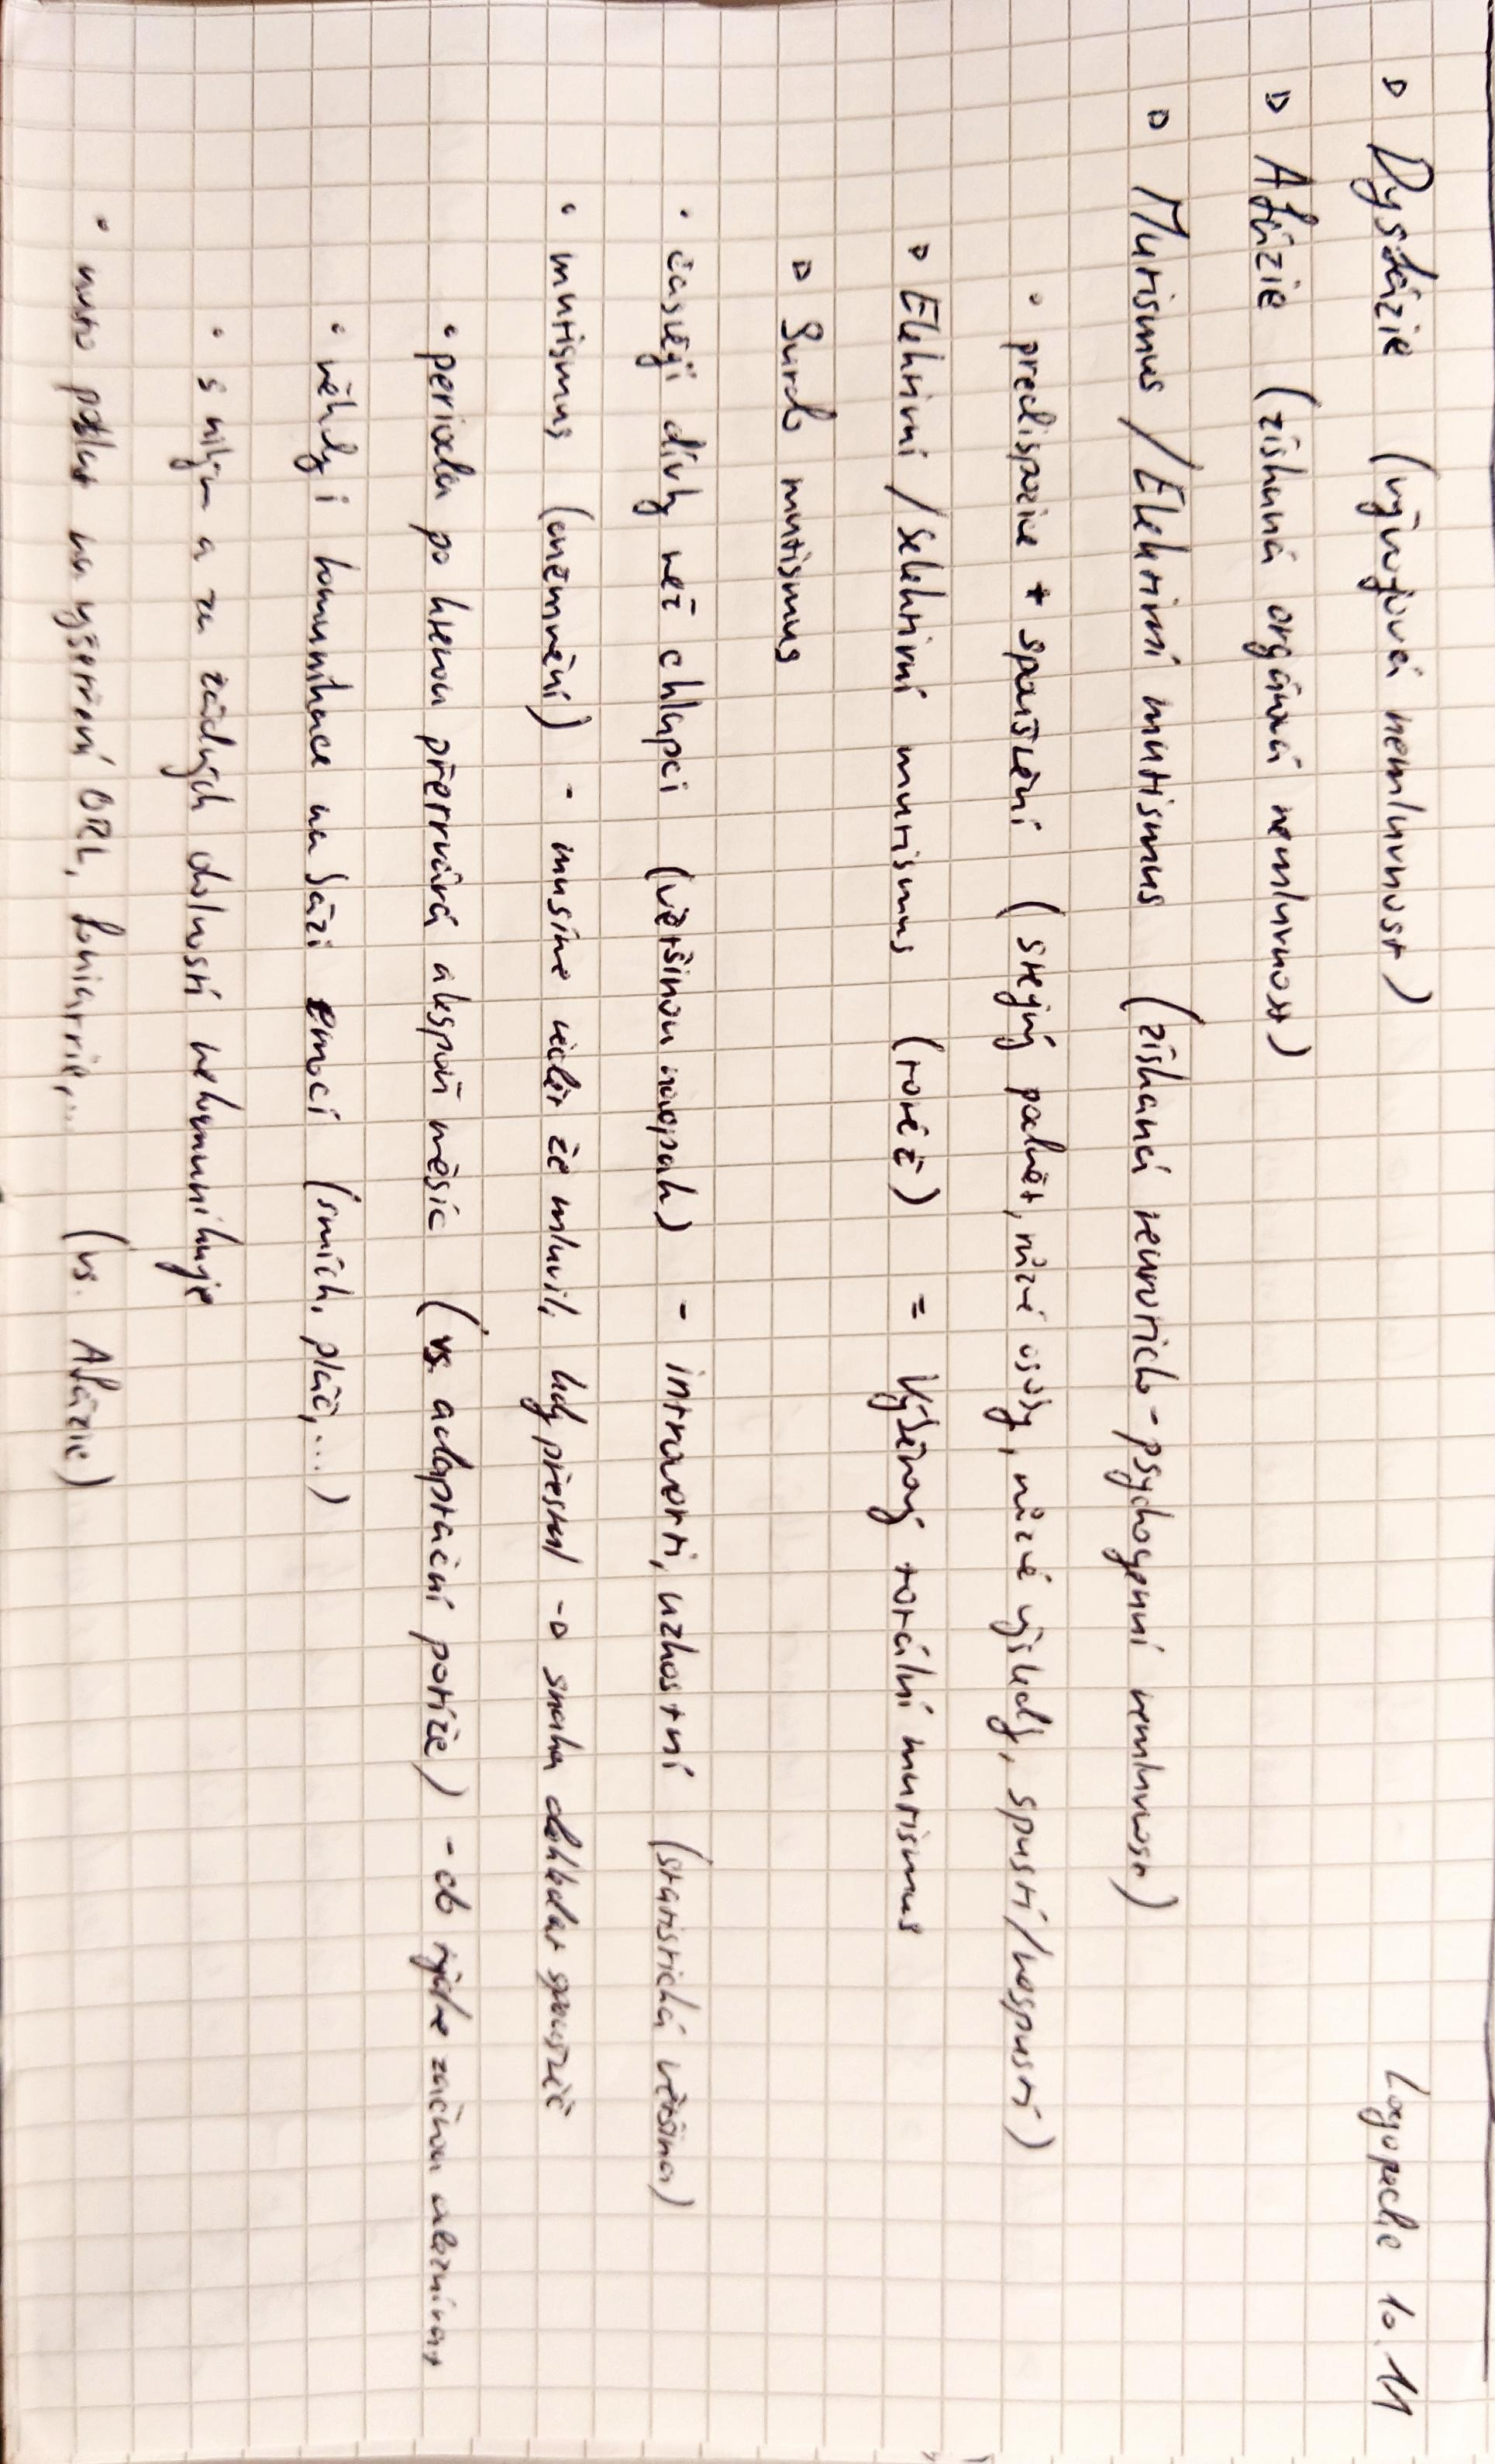 Logopedie 10.11
▷ Dysfázie (vývojová nemluvnost)
▷ Afázie (získaná orgánová nemluvnost)
▷ Mutismus / Elektivní mutismus (získaná neuroticko-psychogenní nemluvnost)
• predispozice + spouštění (stejný podnět, různé osoby, různé výsledky, spustí/nespustí)
▷ Elektivní / selektivní mutismus (totéž) = Výběrový totální mutismus
▷ Surdo mutismus
• častěji dívky než chlapci (většinou naopak) - introverti, úzkostní (statistická většina)
• mutismus (oněmnění) - musíme vědět že mluvil, kdy přestal -▷ snaha dohledat spouštěč
• perioda po kterou přetrvává alespoň měsíc (vs. adaptační potíže) - do týdne začnou
• někdy i komunikace na bázi emocí (smích, pláč,...)
• s nikým a za žádných okolností nekomunikuje
• nutno poslat na vyšetření ORL, foniatrie,... (vs. Afázie)